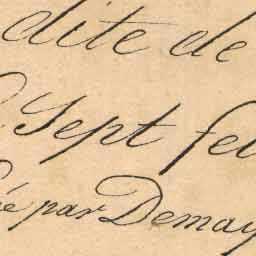 dite de
Sept fe
par Demay